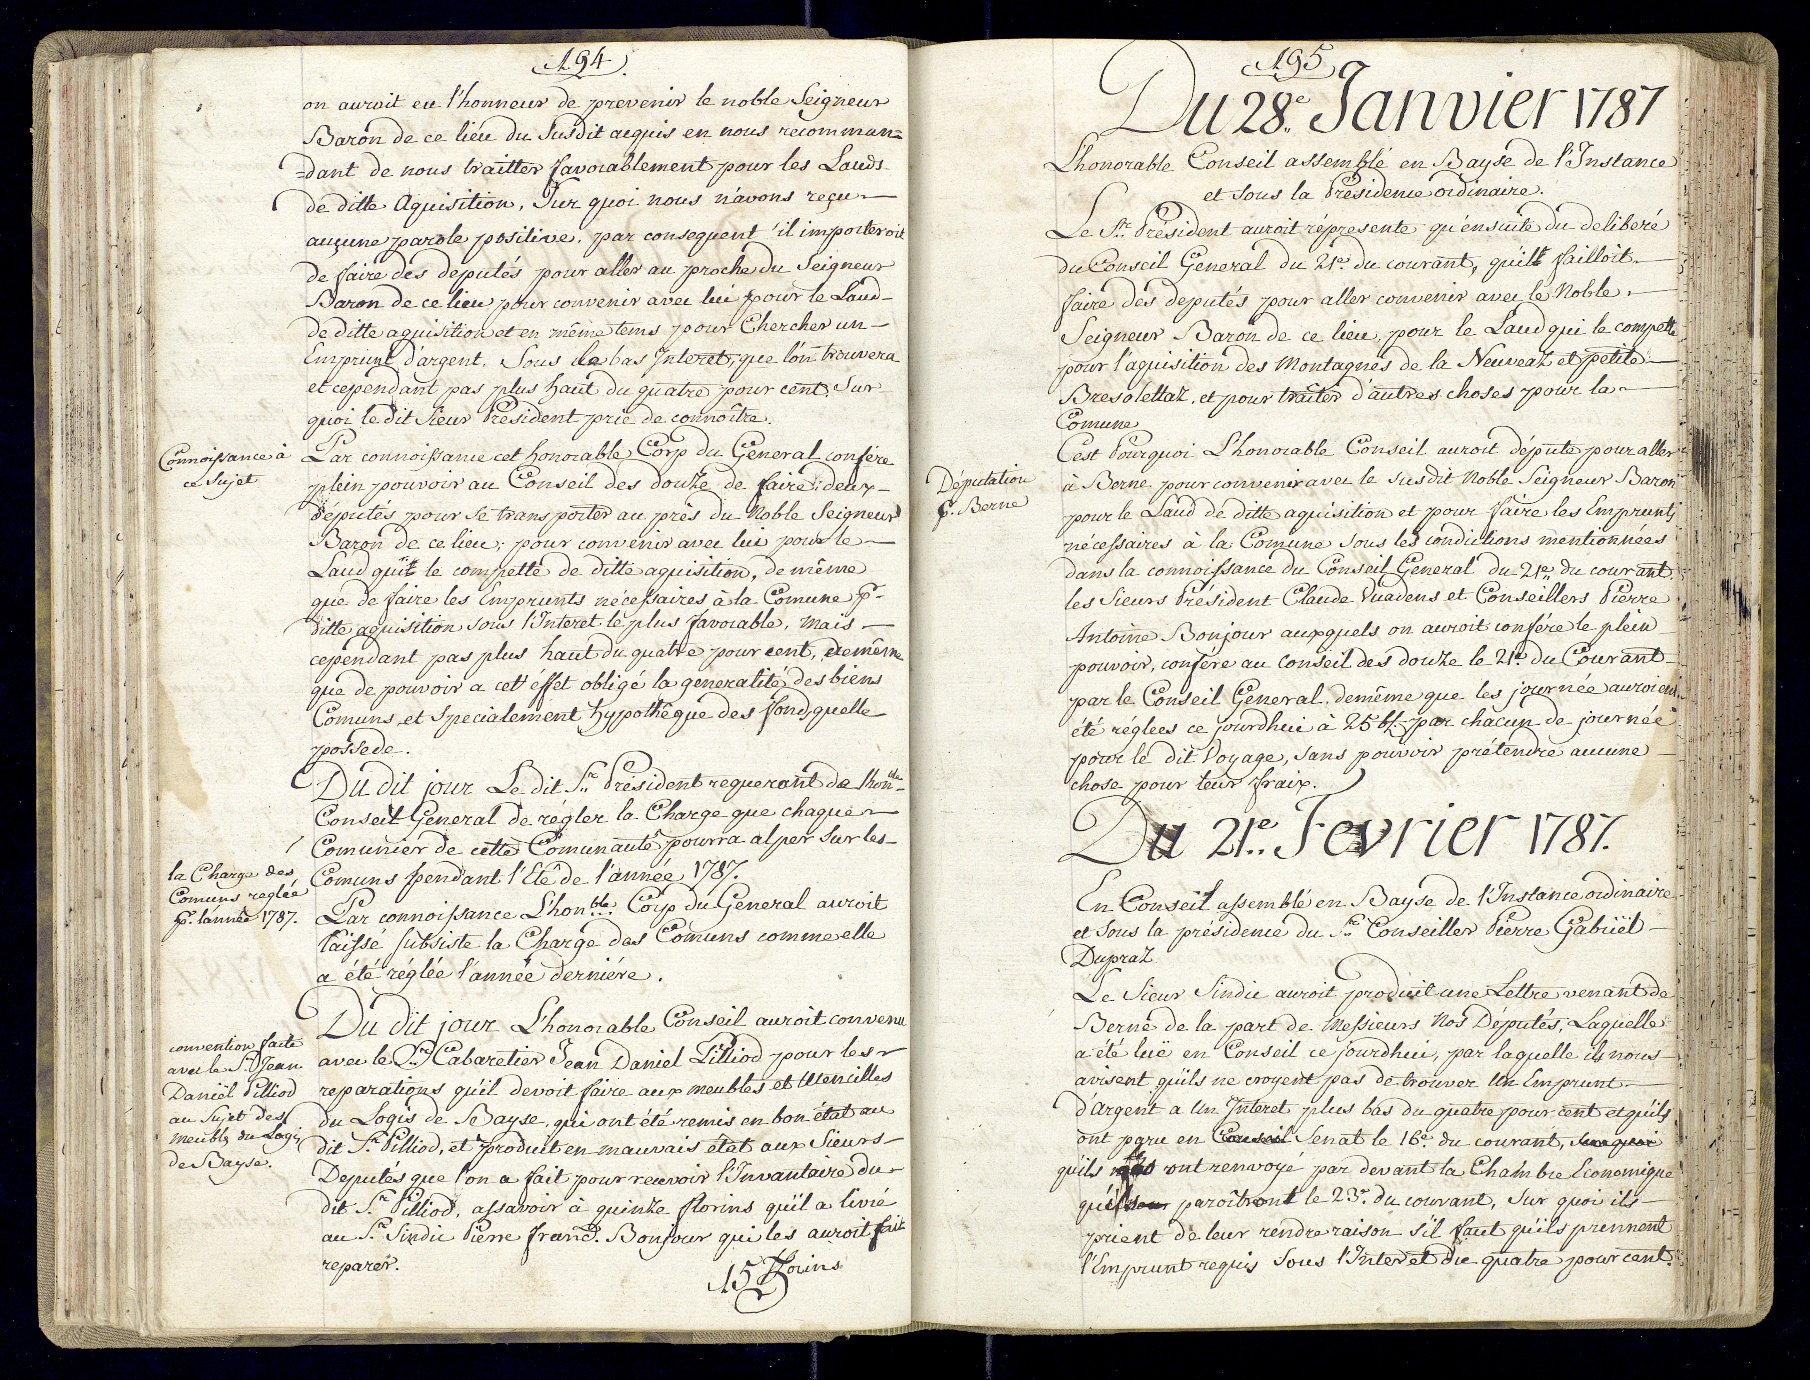 194.
on auroit eu l'honneur de prevenir le noble Seigneur
Baron de ce lieu du susdit aquis en nous recomman=
=dant de nous traitter favorablement pour les Lauds
de ditte Aquisition, Sur quoi nous n'avons reçu
auçune parole positive. par consequent il importeroit
de faire des deputés pour aller au proche du Seigneur
Baron de ce lieu pour convenir avec lui pour le Laud
de ditte aquisition et en même tems pour Chercher un
Emprunt d'argent. Sous le bas Interet, que l'on trouvera
et cependant pas plus haut du quatre pour cent. Sur
quoi le dit Sieur Président prie de connoître.
Connoissance à
ce Sujet
Par connoissance cet honorable Corp du General confére
plein pouvoir au Conseil des douze de faire deux
députés pour se transporter au près du Noble Seigneur
Baron de ce lieu; pour convenir avec lui pour le
Laud qui le compette de ditte aquisition, de même
que de faire les Emprunts nécessaires à la Comune p.r
ditte aquisition sous l'Interet le plus favorable, mais
cependant pas plus haut du quatre pour cent, de même
que de pouvoir a cet éffet obligé la generalité des biens
Comuns et specialement hypothêque des fonds quelle
possede.
Du dit jour Le dit S.r Président requerant de l'hon.ble
Conseil General de régler la Charge que chaque
Comunier de cette Comunauté pourra alper sur les
la Charge des
Comuns reglée
p.r l'année 1787.
Comuns pendant l'Eté de l'année 1787.
Par connoissance L'hon.ble Corp du General auroit
laissé subsiste la Charge des Comuns comme elle
a été réglée l'année derniére.
Du dit jour L'honorable Conseil auroit convenu
convention faite
avec le S.r Jean
Daniël Pilliod
au Sujet des
meubls du Logis
de Bayse.
avec le S.r Cabaretier Jean Daniel Pilliod pour les
reparations qu'il devoit faire aux meubles et Utencilles
du Logis de Bayse, qui ont été remis en bon état au
dit S.r Pilliod, et produit en mauvais état aux Sieurs
Deputés que l'on a fait pour recevoir l'Invantaire du
dit S.r Pilliod, assavoir à quinze florins qu'il a livré
au S.r Sindic Pierre Franç. Bonjour qui les auroit fait
reparer.
15 florins
195
Du 28.e Janvier 1787
L'honorable Conseil assemblé en Bayse de l'Instance
et sous la Présidence ordinaire.
Le S.r Président auroit répresente qu'ensuite du deliberé
du Conseil General du 21.e du courant, qu'il failloit
faire des deputés pour aller convenir avec le Noble
Seigneur Baron de ce lieu, pour le Laud qui le compette
pour l'aquisition des Montagnes de la Neuveaz et petite
Bresolettaz, et pour traiter d'autres choses pour la
Comune
C'est Pourquoi L'honorable Conseil auroit députe pour aller
Députation
p.r Berne
à Berne pour convenir avec le susdit Noble Seigneur Baron
pour le Laud de ditte aquisition et pour faire les Emprunts
nécessaires à la Comune sous les condictions mentionnées
dans la connoissance du Conseil General du 21.e du courant
les Sieurs Président Claude Vuadens et Conseillers Pierre
Antoine Bonjour auxquels on auroit confére le plein
pouvoir, confére au Conseil des douze le 21.e du Courant
par le Conseil General. demême que les journée auroient
été réglees ce jourdhui à 25 btz par chacun de journée
pour le dit Voyage, sans pouvoir prétendre aucune
chose pour leur fraix.
Du 21.e Fevrier 1787.
En Conseil assemblé en Bayse de l'Instance ordinaire
et sous la présidence du S.r Conseiller Pierre Gabriël
Dupraz
Le Sieur Sindic auroit produit une Lettre venant de
Berne de la part de Messieurs Nos Députés, Laquelle
a été luë en Conseil ce jourdhui, par laquelle ils nous
avisent qu'ils ne croyent pas de trouver Un Emprunt
d'argent a Un Interet plus bas du quatre pour cent et qu'ils
ont paru en Conseil Senat le 16.e du courant, Sur quoi
qu'ils ont renvoyé par devant la Chambre Economique
qu'ils paroîtront le 23.e du courant, Sur quoi ils
prient de leur rendre raison s'il faut qu'ils prennent
l'Emprunt requis sous l'Interet du quatre pour cent.